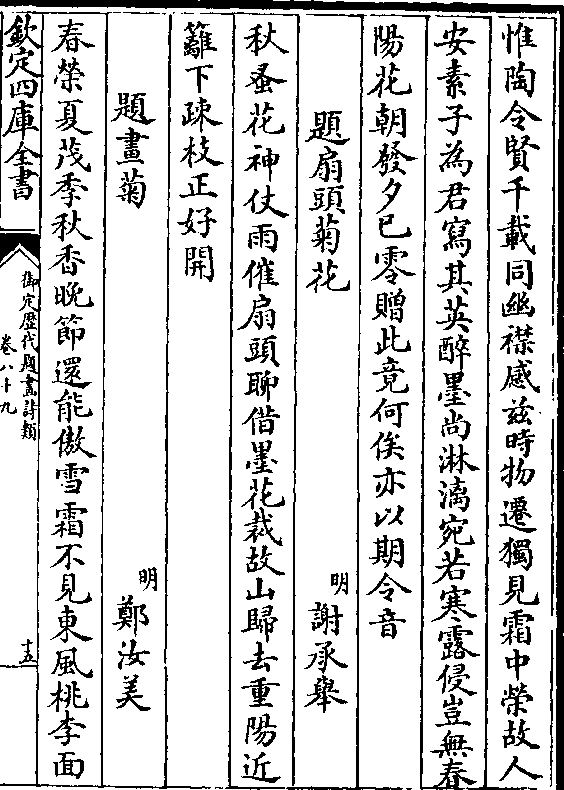 惟陶令賢千載同幽襟感兹時物遷獨見霜中榮故人
安素子為君寫其英醉墨尚淋漓宛若寒露侵豈無春
陽花朝發夕已零贈此竟何俟亦以期令音
題扇頭菊花
明 謝承舉
秋蚤花神仗雨催扇頭聊借墨花裁故山歸去重陽近
籬下疎枝正好開
題畫菊
明 鄭汝美
春榮夏茂季秋香晚節還能傲雪霜不見東風桃李面
欽定四庫全書
御定歴代題畫詩類
卷八十九
十五